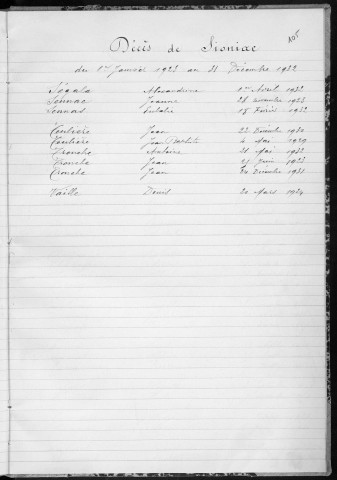 105
Décès de Sioniac
du 1er Janvier 1923 au 31 Décembre 1932
Ségala Alexandrine 1er Avril 1932
Sennac Jeanne 28 novembre 1923
Sennac Eulalie 18 Février 1932
Teulière Jean 22 Décembre 1930
Teulière Jean Baptiste 4 Mai 1929
Tronche Antoine 21 Mai 1932
Tronche Jean 21 Juin 1923
Tronche Jean 24 Décembre 1931
Vaille Denis 20 Mars 1924